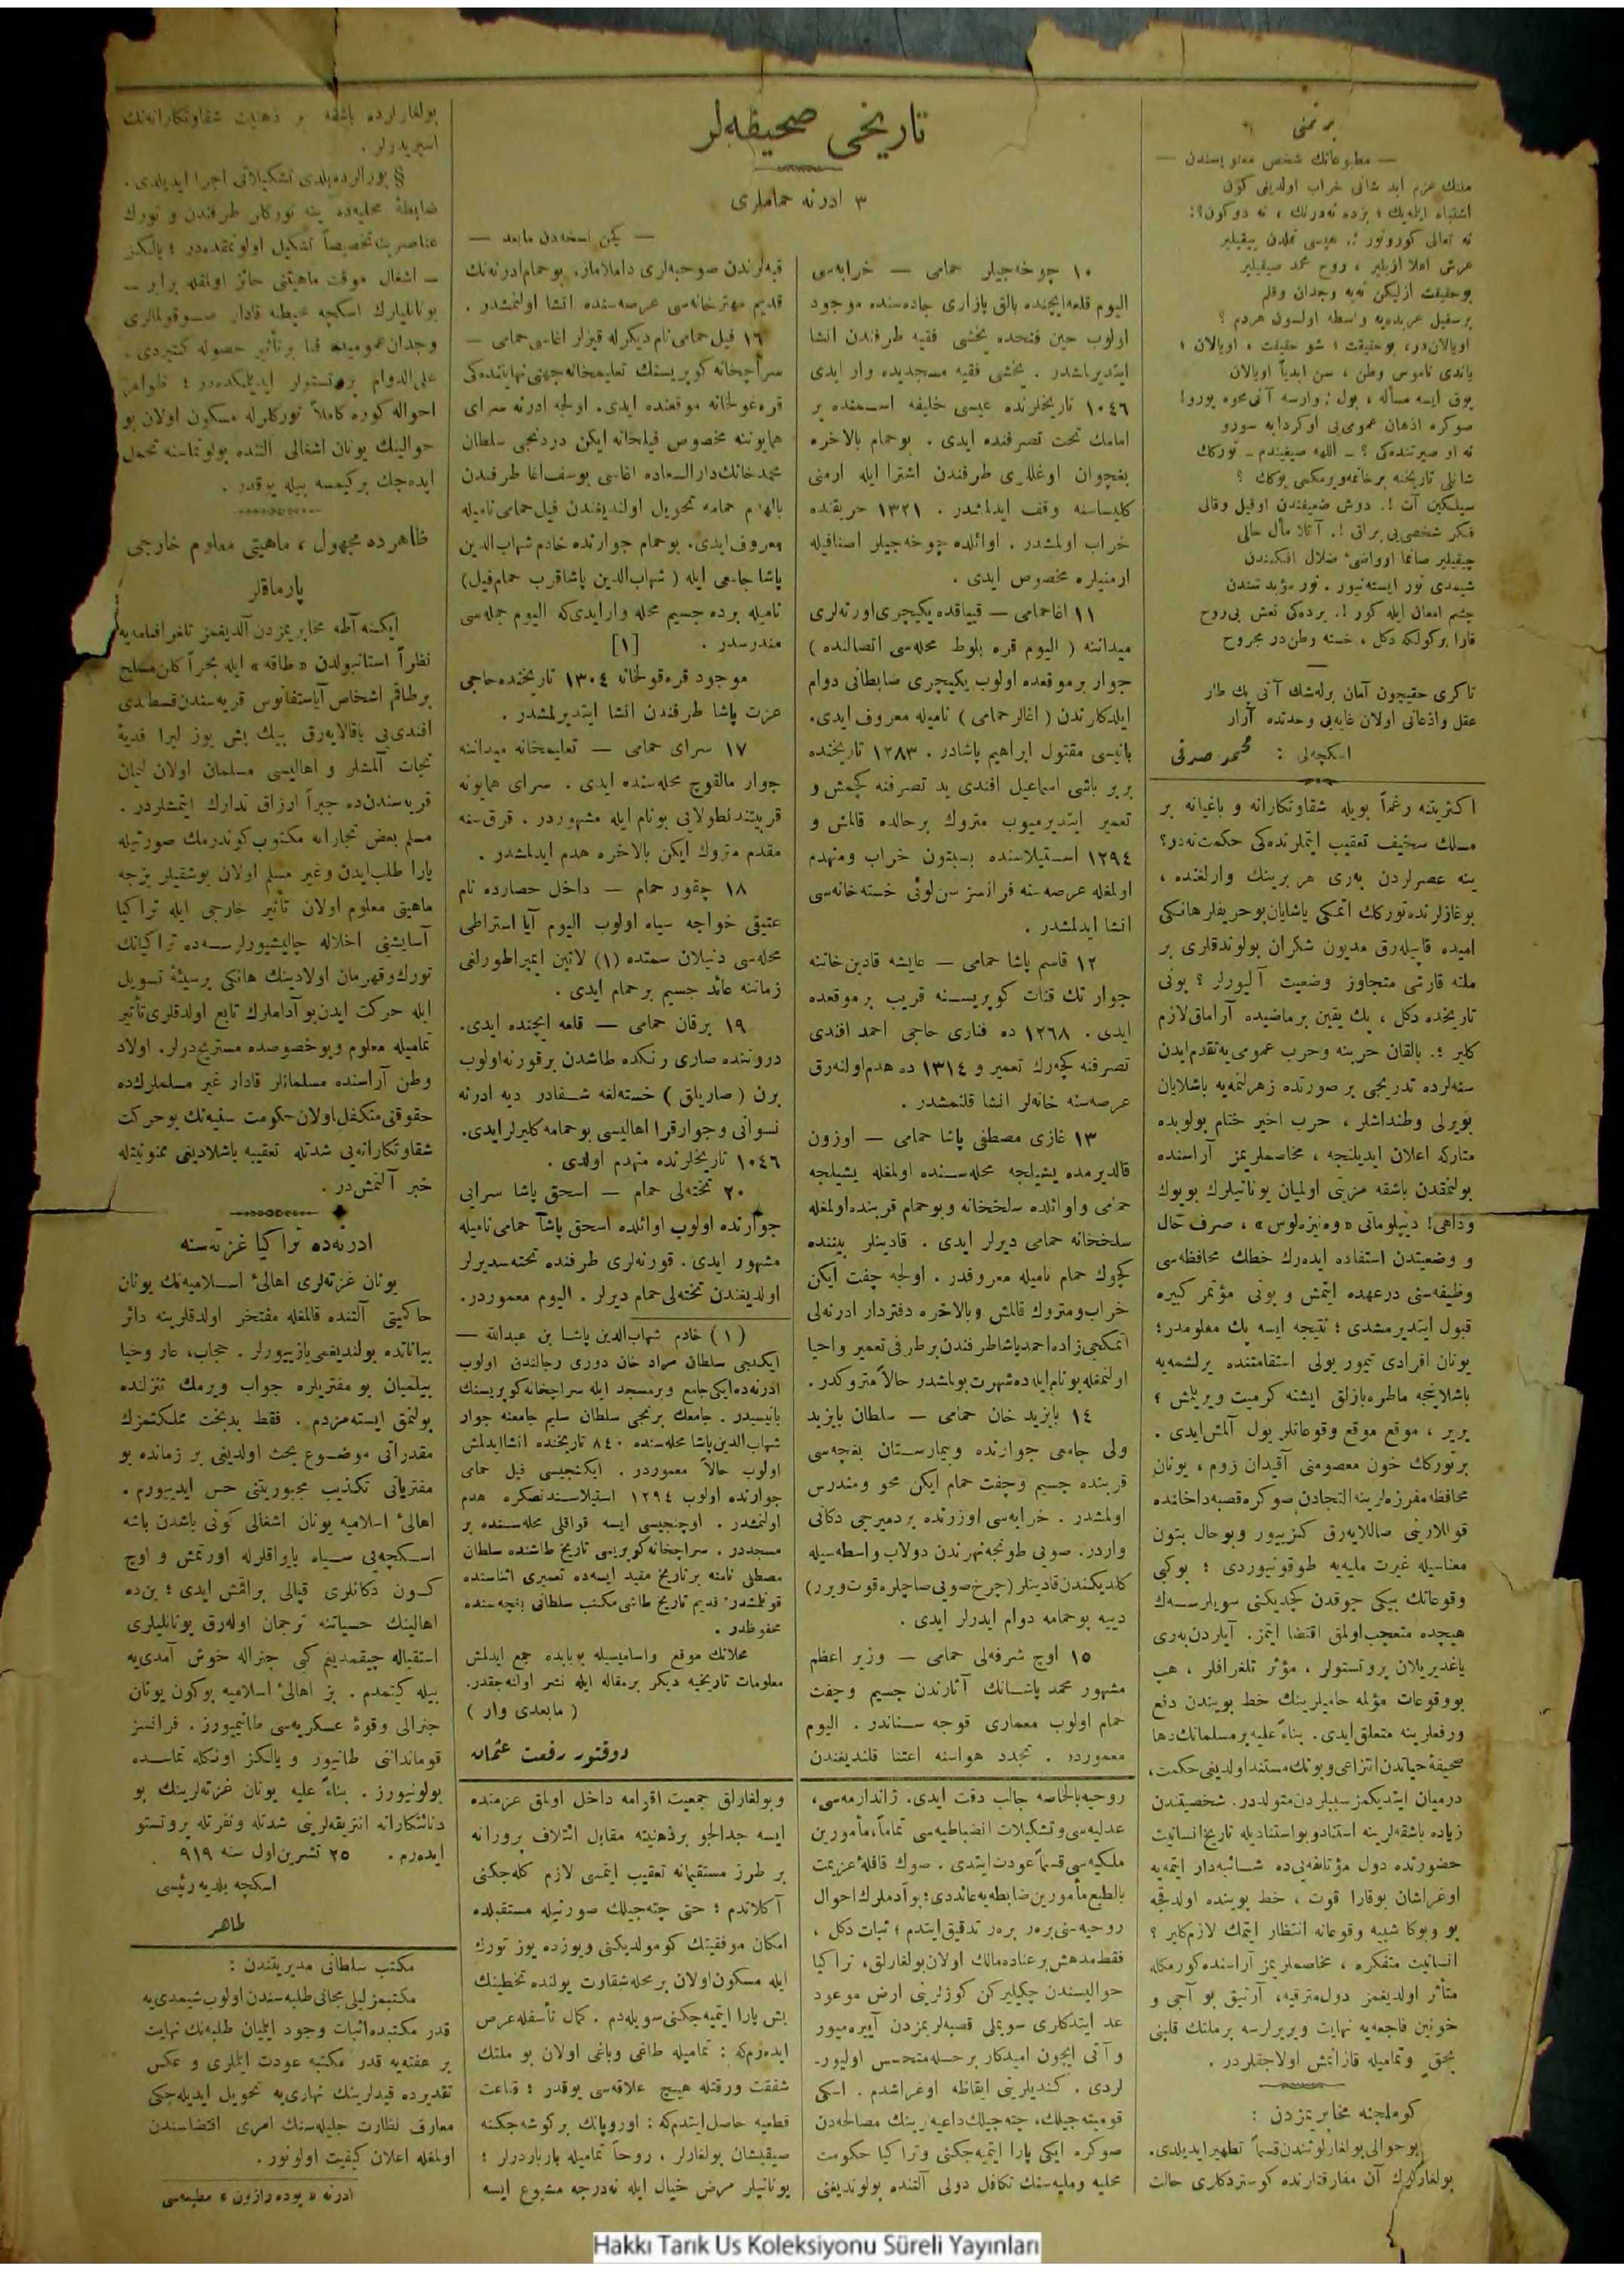 بر تمنی
— مطبوعاتك شخص معنویسندن —
ملتك عزم ابد شانی خراب اولدیغی كون
اشتباه ایله‌یك ؛ بزده نه‌درنك ، نه دوكون؟!
عرش اعلا ازیلیر ، روح محمد صیقیلیر
بو حقیقت ازلیكن نه‌یه وجدان وقلم
برسفیل عربده‌یه واسطه اولسون هردم ؟
اویالان‌در، بوحقیقت ؛ شو حقیقت ، اویالان ؛
یاندی ناموس وطن ، سن ابدیاً اویالان
یوق ایسه مسأله ، بول ; وارسه آنی محوه یورو!
صوكره اذهان عمومی‌یی اوكردابه سورو
شانلی تاریخنه برخاتمه ویرمكمی یوكك ؟
سیلكین آت !. دوش ضعیفندن اوقیل وقالی
فكر شخصی‌یی براق !. آكلا مأل حالی
شیمدی نور ایسته‌نیور . نور مؤبد سندن
چشم امعان ایله كور !. برده‌كی نعش بی‌روح
قارا بركولكه دكل ، خسته وطن‌در مجروح
—
تاكری حقیچون آمان برله‌شك آتی پك طار
عقل واذعانی اولان غایه‌یی وحدتده آرار
اسكچه‌لی : محمد صدقی
اكثریتنه رغماً بویله شقاوتكارانه و باغیانه بر
مسلك سخیف تعقیب ایتملرنده‌كی حكمت نه‌در؟
ینه عصرلردن به‌ری هر برینك وارلغنده ،
بوغازلرنده توركك اتمكی یاشایان بوحریفلر هانكی
امیده قاپیله‌رق مدیون شكران بولوندقلری بر
ملته قارشی متجاوز وضعیت آلیورلر ؟ بونی
تاریخده دكل ، پك یقین برماضیده آراماق لازم
كلیر ؛. بالقان حربنه وحرب عمومی‌یه تقدم ایدن
سنه‌لرده تدریجی بر صورتده زهرلنمه‌یه باشلایان
بویرلی وطنداشلر ، حرب اخیر ختام بولوبده
متاركه اعلان ایدیلنجه ، مخاصملریمز آراسنده
بولنمقدن باشقه مزیتی اولمیان یونانیلرك بویوك
وداهی! دیپلوماتی «وه‌نیزه‌لوس» ، صرف حال
و وضعیتدن استفاده ایده‌رك خطك محافظه‌سی
وظیفه‌سنی درعهده ایتمش و بونی مؤتمر كبیره
قبول ایتدیرمشدی ؛ نتیجه ایسه پك معلومدر؛
یونان افرادی تیمور یولی استقامتنده یرلشمه‌یه
باشلاینجه ماطره‌بازلق ایشنه كرمیت ویریلش ؛
یریر ، موقع موقع وقوعاتلر یول آلمش‌ایدی .
برتوركك خون معصومنی آقیدان زوم ، یونان
محافظه مفرزه‌لرینه التجادن صوكره قصبه داخلنده
قوللارینی صاللایه‌رق كزییور وبوحال بتون
معناسیله غیرت ملیه‌یه طوقونیوردی ؛ بوكبی
وقوعاتك بیكی چوقدن كچدیكنی سویلرسه‌ك
هیچده متعجب اولمق اقتضا ایتمز. آیلردن‌به‌ری
یاغدیریلان پروتستولر ، مؤثر تلغرافلر ، هپ
بووقوعات مؤلمه حامیلرینك خط بویندن دفع
ورفعلرینه متعلق‌ایدی. بناءً علیه برمسلمانك دها
صحیفهٔ حیاتدن انتزاعی وبونك مستند اولدیغی حكمت،
درمیان ایتدیكمز سببلردن متولددر. شخصیتندن
زیاده باشقه‌لرینه استناد و بواستنادیله تاریخ انسانیت
حضورنده دول مؤتلفه‌یی‌ده شائبه‌دار ایتمه‌یه
اوغراشان بوقارا قوت ، خط بوینده اولدقجه
بو وبوكا شبیه وقوعاته انتظار ایتمك لازم كلیر ؟
انسانیت متفكره ، مخاصملریمز آراسنده كورمكله
متأثر اولدیغمز دول مترقیه، آرتیق بو آجی و
خونین فاجعه‌یه نهایت ویریرلرسه برملتك قلبنی
بحق وتمامیله قازانمش اولاجقلردر .
كوملجنه مخابریمزدن :
بوحوالی بولغارلوثندن قسماً تطهیر ایدیلدی.
بولغارلرك آن مفارقتلرنده كوستردكلری حالت
تاریخی صحیفه‌لر
۳ ادرنه حماملری
— كچن نسخه‌دن مابعد —
۱۰ چوخه‌جیلر حمامی — خرابه‌سی
الیوم قلعه ایچنده بالق پازاری جاده‌سنده موجود
اولوب حین فتحده یخشی فقیه طرفندن انشا
ایتدیرلمشدر . یخشی فقیه مسجدیده وار ایدی
۱۰٤٦ تاریخلرنده عیسی خلیفه اسمنده بر
امامك تحت تصرفنده ایدی . بوحمام بالاخره
بغچوان اوغللری طرفندن اشترا ایله ارمنی
كلیساسنه وقف ایدلمشدر . ۱۳۲۱ حریقنده
خراب اولمشدر . اوائلده چوخه‌جیلر اصنافیله
ارمنیلره مخصوص ایدی .
۱۱ اغا حمامی — قیپاقده یكیچری اورته‌لری
میداننه ( الیوم قره بلوط محله‌سی اتصالنده )
جوار برموقعده اولوب یكیچری ضابطانی دوام
ایلدكلرندن ( اغالر حمامی ) نامیله معروف ایدی.
بانیسی مقتول ابراهیم پاشادر . ۱۲۸۳ تاریخنده
بربر باشی اسماعیل افندی ید تصرفنه كچمش و
تعمیر ایتدیرمیوب متروك برحالده قالمش و
۱۲۹٤ استیلاسنده بسبتون خراب ومنهدم
اولمغله عرصه‌سنه فرانسز سن‌لوئی خسته‌خانه‌سی
انشا ایدلمشدر .
۱۲ قاسم پاشا حمامی — عایشه قادین خاتنه
جوار تك قنات كوپریسنه قریب برموقعده
ایدی . ۱۲٦۸ ده فناری حاجی احمد افندی
تصرفنه كچه‌رك تعمیر و ۱۳۱٤ ده هدم اولنه‌رق
عرصه‌سنه خانه‌لر انشا قلنمشدر .
۱۳ غازی مصطفی پاشا حمامی — اوزون
قالدیرمده یشیلجه محله‌سنده اولمغله یشیلجه
حمامی واوائلده سلخخانه وبوحمام قربنده اولمغله
سلخخانه حمامی دیرلر ایدی . قادینلر بیننده
كچوك حمام نامیله معروفدر . اولجه چفت ایكن
خراب ومتروك قالمش وبالاخره دفتردار ادرنه‌لی
اتمكجی زاده احمد پاشا طرفندن برطرفی تعمیر واحیا
اولنمغله بونام ایله‌ده شهرت بولمشدر حالاً متروكدر.
۱٤ بایزید خان حمامی — سلطان بایزید
ولی جامعی جوارنده وبیمارستان بغچه‌سی
قربنده جسیم وچفت حمام ایكن محو ومندرس
اولمشدر . خرابه‌سی اوزرنده بردمیرجی دكانی
واردر. صویی طونجه نهرندن دولاب واسطه‌سیله
كلدیكندن قادینلر (چرخ صویی صاچلره قوت ویرر)
دییه بوحمامه دوام ایدرلر ایدی .
۱۵ اوچ شرفه‌لی حمامی — وزیر اعظم
مشهور محمد پاشانك آثارندن جسیم وچفت
حمام اولوب معماری قوجه سناندر . الیوم
معموردر . تجدد هواسنه اعتنا قلندیغندن
قبه‌لرندن صوحبه‌لری داملاماز. بوحمام ادرنه‌نك
قدیم مهترخانه‌سی عرصه‌سنده انشا اولنمشدر .
۱٦ فیل حمامی نام دیكرله قیزلر اغاسی حمامی —
سراجخانه كوپریسنك تعلیمخانه جهتی نهایتنده‌كی
قره‌غولخانه موقعنده ایدی. اولجه ادرنه سرای
همایوننه مخصوص فیلخانه ایكن دردنجی سلطان
محمد خانك دارالسعاده اغاسی یوسف اغا طرفندن
بالهدم حمامه تحویل اولندیغندن فیل حمامی نامیله
معروف ایدی. بوحمام جوارنده خادم شهاب‌الدین
پاشا جامعی ایله ( شهاب‌الدین پاشا قرب حمام فیل)
نامیله برده جسیم محله وارایدی‌كه الیوم جمله‌سی
مندرسدر . [۱]
موجود قره‌قولخانه ۱۳۰٤ تاریخنده حاجی
عزت پاشا طرفندن انشا ایتدیرلمشدر .
۱۷ سرای حمامی — تعلیمخانه میداننه
جوار مالقوچ محله‌سنده ایدی . سرای همایونه
قربیتندن‌طولایی بونام ایله مشهوردر . قرق سنه
مقدم متروك ایكن بالاخره هدم ایدلمشدر .
۱۸ چقور حمام — داخل حصارده نام
عتیقی خواجه سیاه اولوب الیوم آیا استراطی
محله‌سی دنیلان سمتده (۱) لاتین ایمپراطورلغی
زماننه عائد جسیم برحمام ایدی .
۱۹ یرقان حمامی — قلعه ایچنده ایدی.
دروننده صاری رنكده طاشدن برقورنه اولوب
یرن ( صاریلق ) خسته‌لغه شفادر دیه ادرنه
نسوانی وجوار قرا اهالیسی بوحمامه كلیرلر ایدی.
۱۰٤٦ تاریخلرنده منهدم اولدی .
۲۰ تخته‌لی حمام — اسحق پاشا سرایی
جوارنده اولوب اوائلده اسحق پاشا حمامی نامیله
مشهور ایدی. قورنه‌لری طرفنده تخته سدیرلر
اولدیغندن تخته‌لی حمام دیرلر . الیوم معموردر.
(۱) خادم شهاب‌الدین پاشا بن عبدالله —
ایكنجی سلطان مراد خان دوری رجالندن اولوب
ادرنه‌ده ایكی جامع و برمسجد ایله سراجخانه كوپریسنك
بانیسیدر . جامعك برنجی سلطان سلیم جامعنه جوار
شهاب‌الدین پاشا محله‌سنده ۸٤۰ تاریخنده انشا ایدلمش
اولوب حالاً معموردر . ایكنجیسی فیل حمامی
جوارنده اولوب ۱۲۹٤ استیلاسندنصكره هدم
اولنمشدر . اوچنجیسی ایسه قواقلی محله‌سنده بر
مسجددر . سراجخانه كوپریسی تاریخ طاشنده سلطان
مصطفی نامنه برتاریخ مفید ایسه‌ده تعمیری اثناسنده
قونلمشدر. قدیم تاریخ طاشی مكتب سلطانی بغچه‌سنده
محفوظدر .
محلاتك موقع واسامیسیله بوبابده جمع ایدلمش
معلومات تاریخیه دیكر برمقاله ایله نشر اولنه‌جقدر.
( مابعدی وار )
دوقتور رفعت عثمان
روحیه بالخاصه جالب دقت ایدی. ژاندارمه‌سی،
عدلیه‌سی وتشكیلات انضباطیه‌سی تماماً، مأمورین
ملكیه‌سی قسماً عودت ایتدی . صوك قافلهٔ عزیمت
بالطبع مأمورین ضابطه‌یه عائددی؛ بوآدملرك احوال
روحیه‌سنی بره‌ر بره‌ر تدقیق ایتدم ؛ ثبات دكل ،
فقط مدهش برعناده مالك اولان بولغارلق، تراكیا
حوالیسندن چكیلیركن كوزلرینی ارض موعود
عد ایتدكلری سویملی قصبه‌لریمزدن آییره‌میور
و آتی ایچون امیدكار برحسله متحسس اولیور-
لردی . كندیلرینی ایقاظه اوغراشدم . اسكی
قومیته‌جیلك، چته‌جیلك داعیه‌لرینك مصالحه‌دن
صوكره ایكی پارا ایتمیه‌جكنی وتراكیا حكومت
محلیه وملیه‌سنك تكافل دولی آلتنده بولوندیغنی
وبولغارلق جمعیت اقوامه داخل اولمق عزمنده
ایسه جدالجو برذهنیته مقابل ائتلاف پرورانه
بر طرز مستقیمانه تعقیب ایتمسی لازم كله‌جكنی
آكلاتدم ؛ حتی چته‌جیلك صورتیله مستقبلده
امكان موفقیتك كومولدیكنی ویوزده یوز تورك
ایله مسكون اولان بر محله شقاوت یولنده تخطینك
بش پارا ایتمیه‌جكنی سویله‌دم . كمال تأسفله عرض
ایده‌رم‌كه : تمامیله طاغی وباغی اولان بو ملتك
شفقت ورقتله هیچ علاقه‌سی یوقدر ؛ قناعت
قطعیه حاصل ایتدم‌كه : اوروپانك بركوشه‌جكنه
صیقیشان بولغارلر ، روحاً تمامیله بارباردرلر ؛
یونانیلر مرض خیال ایله نه‌درجه مشبوع ایسه
بولغارلرده باشقه بر ذهنیت شقاوتكارانه‌نك
اسیریدرلر .
§ بورالرده‌بلدی تشكیلاتی اجرا ایدیلدی.
ضابطهٔ محلیه‌ده ینه توركلر طرفندن و تورك
عناصرینه تخصیصاً تشكیل اولونمقده‌در ؛ یالكز
— اشغال موقت ماهیتنی حائز اولمقله برابر —
یونانلیلرك اسكچه محیطنه قادار صوقولمالری
وجدان عمومیده فنا برتأثیر حصوله كتیردی.
علی‌الدوام پروتستولر ایدیلمكده‌در ؛ ظواهر
احواله كوره كاملاً توركلرله مسكون اولان بو
حوالینك یونان اشغالی آلتنده بولونماسنه تحمل
ایده‌جك بركیمسه بیله یوقدر .
ظاهرده مجهول ، ماهیتی معلوم خارجی
پارماقلر
ایكنه آطه مخابریمزدن آلدیغمز تلغرافنامه‌یه
نظراً استانبولدن «طاقه» ایله بحراً كلن مسلح
برطاقم اشخاص آیاستفانوس قریه‌سندن قسطاندی
افندی‌یی یاقالایه‌رق بیك بش یوز لیرا فدیهٔ
نجات آلمشلر و اهالیسی مسلمان اولان لیمان
قریه‌سندن‌ده جبراً ارزاق تدارك ایتمشلردر .
مسلم بعض تجارانه مكتوب كوندرمك صورتیله
پارا طلب ایدن وغیر مسلم اولان بوشقیلر بزجه
ماهیتی معلوم اولان تأثیر خارجی ایله تراكیا
آسایشنی اخلاله چالیشیورلرسه‌ده تراكیانك
تورك وقهرمان اولادینك هانكی برسیئهٔ تسویل
ایله حركت ایدن بوآداملرك تابع اولدقلری تأثیر
تمامیله معلوم وبوخصوصده مستریح‌درلر. اولاد
وطن آراسنده مسلمانلر قادار غیر مسلملرك‌ده
حقوقنی متكفل اولان حكومت سنیه‌نك بوحركت
شقاوتكارانه‌یی شدتله تعقیبه باشلادیغی ممنونیتله
خبر آلنمش‌در .
ادرنه‌ده تراكیا غزته‌سنه
یونان غزته‌لری اهالئ اسلامیه‌نك یونان
حاكمیتی آلتنده قالمغله مفتخر اولدقلرینه دائر
بیاناتده بولندیغمی یازییورلر . حجاب، عار وحیا
بیلمیان بو مفتریلره جواب ویرمك تنزلنده
بولنمق ایسته‌مزدم . فقط بدبخت مملكتمزك
مقدراتی موضوع بحث اولدیغی بر زمانده بو
مفتریاتی تكذیب مجبوریتنی حس ایدییورم .
اهالئ اسلامیه یونان اشغالی كونی باشدن باشه
اسكچه‌یی سیاه بایراقلرله اورتمش و اوچ
كون دكانلری قپالی براقمش ایدی ؛ بن‌ده
اهالینك حسیاتنه ترجمان اوله‌رق یونانلیلری
استقباله چیقمدیغم كبی جنراله خوش آمدی‌یه
بیله كیتمدم . بز اهالئ اسلامیه بوكون یونان
جنرالی وقوهٔ عسكریه‌سی طانیمیورز. فرانسز
قومانداننی طانیور و یالكز اونكله تماسده
بولونیورز . بناءً علیه یونان غزته‌لرینك بو
دنائتكارانه انتریقه‌لرینی شدتله ونفرتله پروتستو
ایده‌رم . ۲۵ تشرین‌اول سنه ۹۱۹
اسكچه بلدیه رئیسی
طاهر
مكتب سلطانی مدیریتندن :
مكتبمز لیلی مجانی طلبه‌سندن اولوب شیمدی‌یه
قدر مكتبده اثبات وجود ایتمیان طلبه‌نك نهایت
بر هفته‌یه قدر مكتبه عودت ایتملری و عكس
تقدیرده قیدلرینك نهاری‌یه تحویل ایدیله‌جكی
معارف نظارت جلیله‌سنك امری اقتضاسندن
اولمغله اعلان كیفیت اولونور .
ادرنه «بوده‌رازون» مطبعه‌سی
Hakkı Tarık Us Koleksiyonu Süreli Yayınları